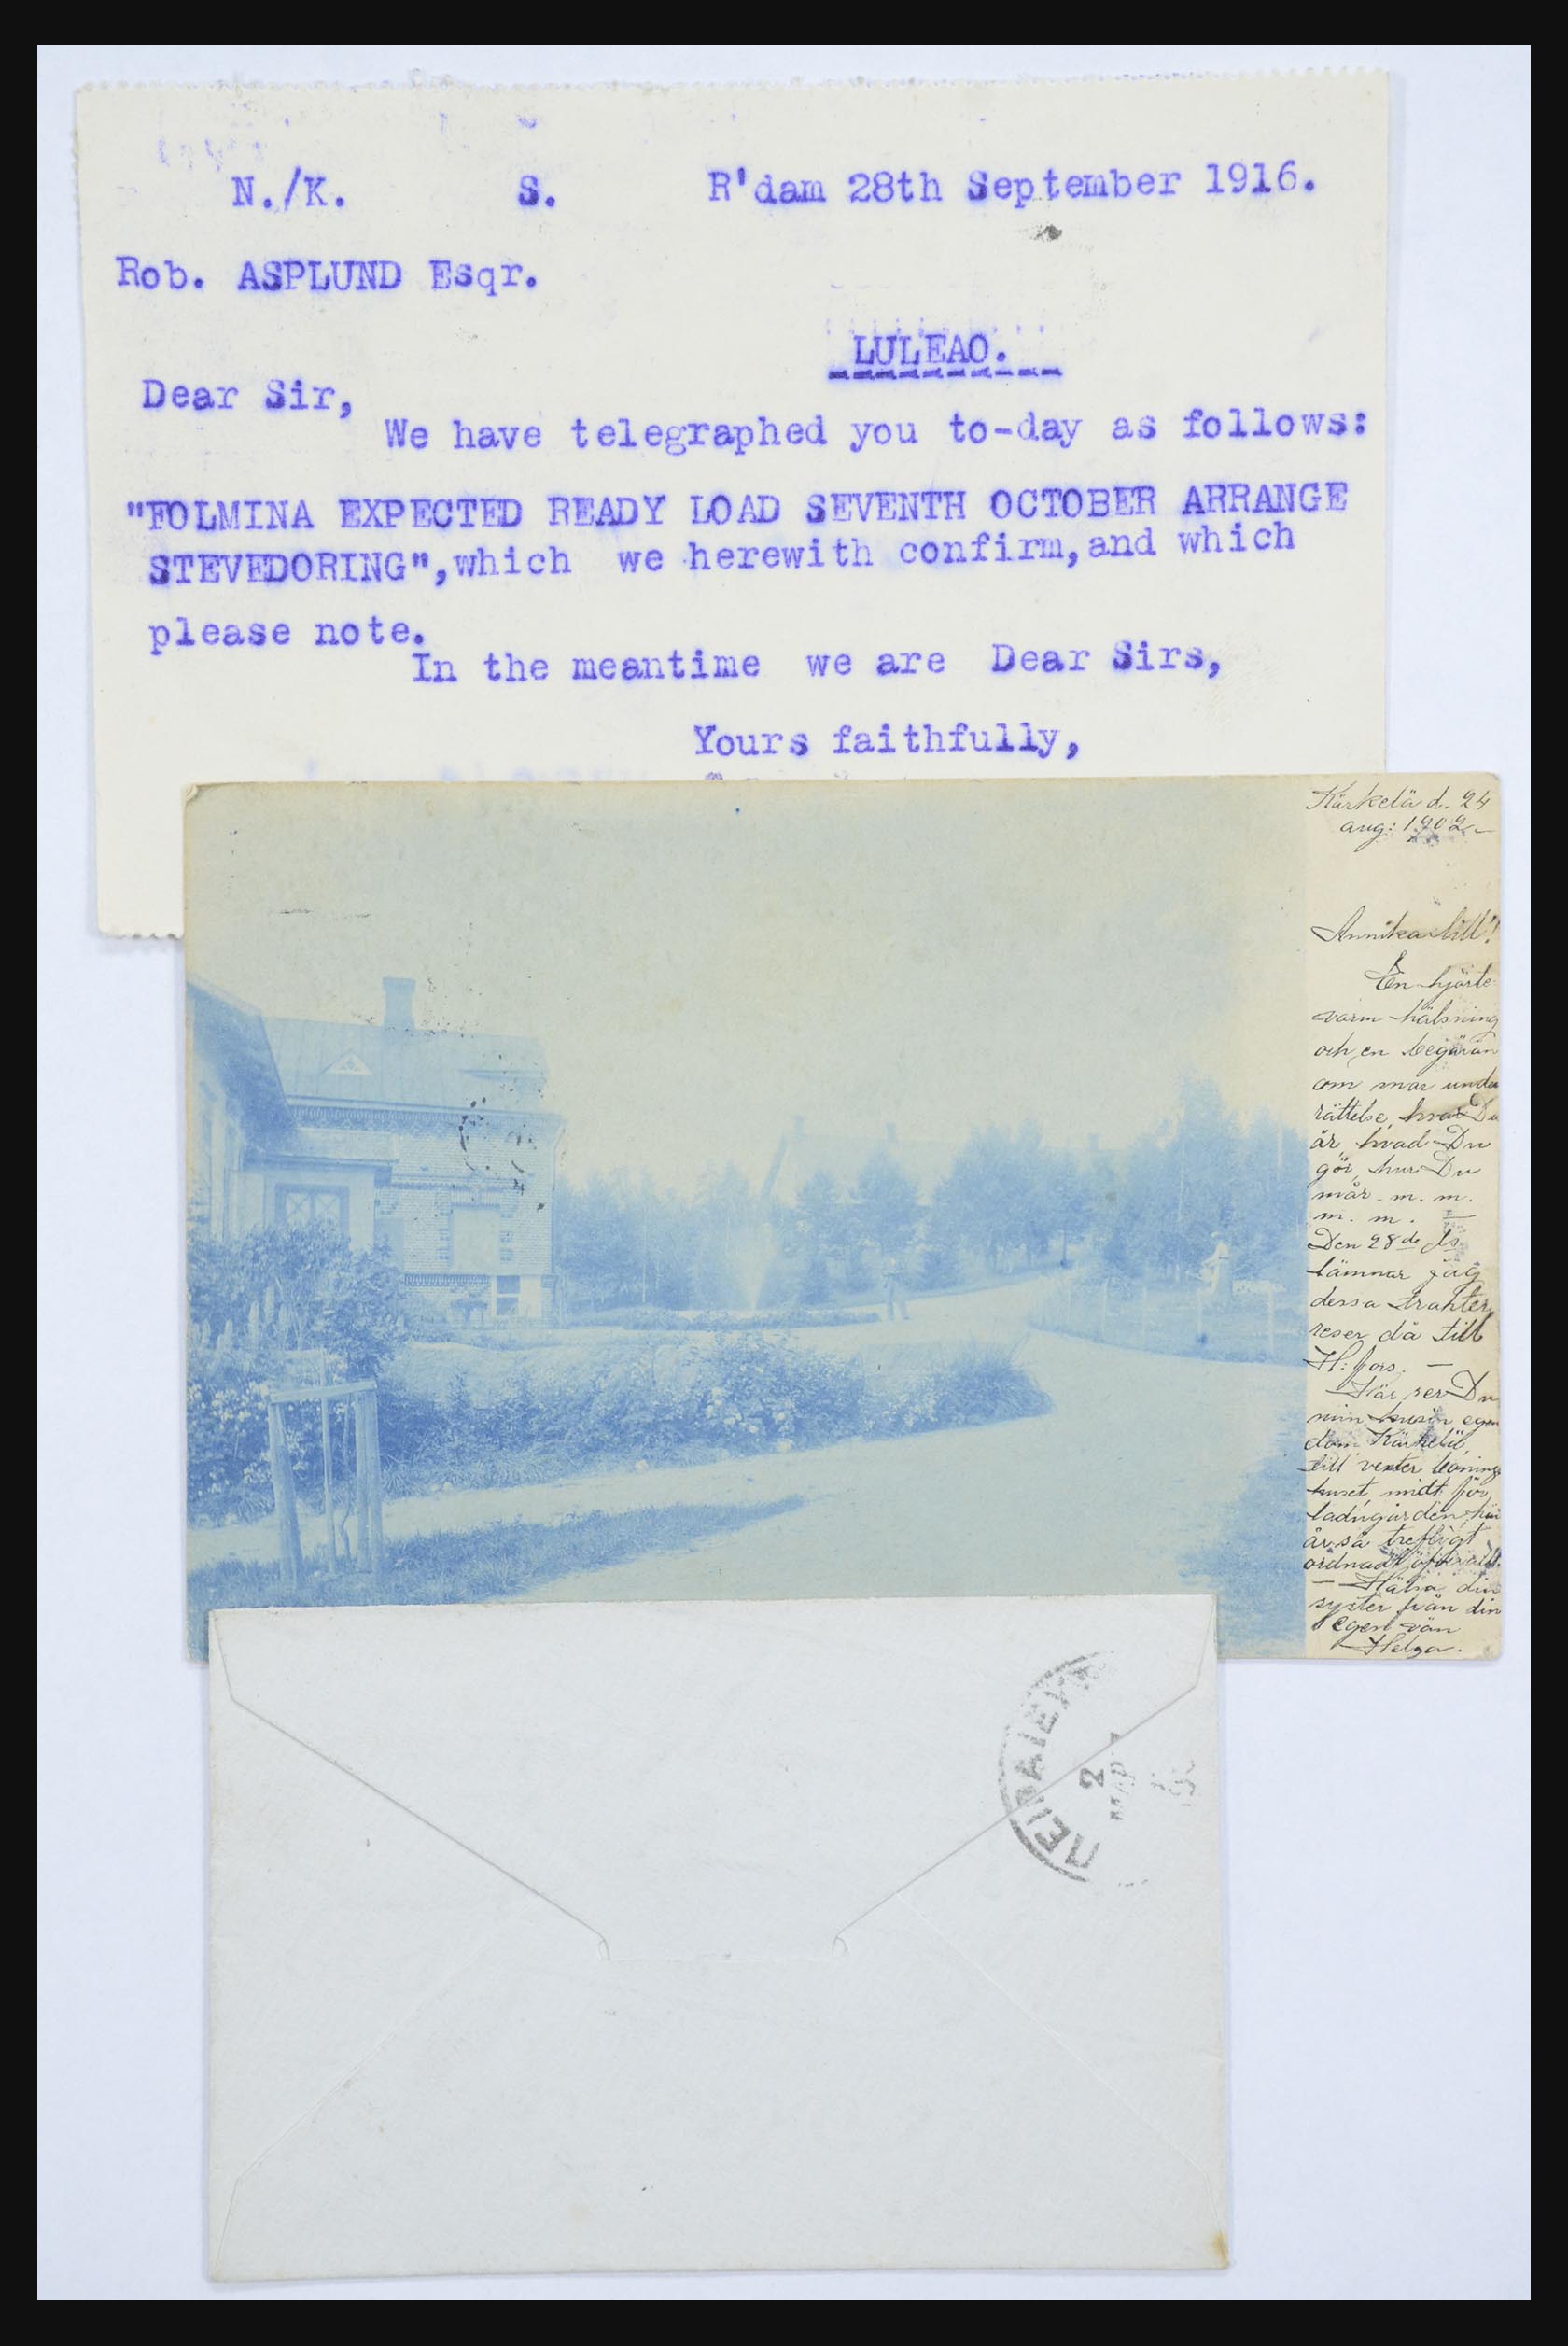 N./K. S. R'dam 28th September 1916.
Rob. ASPLUND Esqr.
LULEAO.
Dear Sir,
We have telegraphed you to-day as follows:
"FOLMINA EXPECTED READY LOAD SEVENTH OCTOBER ARRANGE
STEVEDORING",which we herewith confirm,and which
please note.
In the meantime we are Dear Sirs,
Yours faithfully,
Kärkelä d. 24
aug: 1902
Annika lill!
En hjärte
varm hälsning
och en begäran
om när unde
rättelse, hvar Du
är, hvad Du
gör, hur Du
mår - m. m.
m. m. —
Den 28de ds
lämnar jag
dessa trakter
reser då till
H:fors. —
Här ser Du
min kusin egen
dom Kärkelä,
till venster bonings
huset, midt för
ladugården, här
är så trefligt
ordnadt öfverallt.
— Hälsa din
syster från din
egen vän
Helga.
ΠΕΙΡΑΙΕΥΣ
2
ΜΑΡ